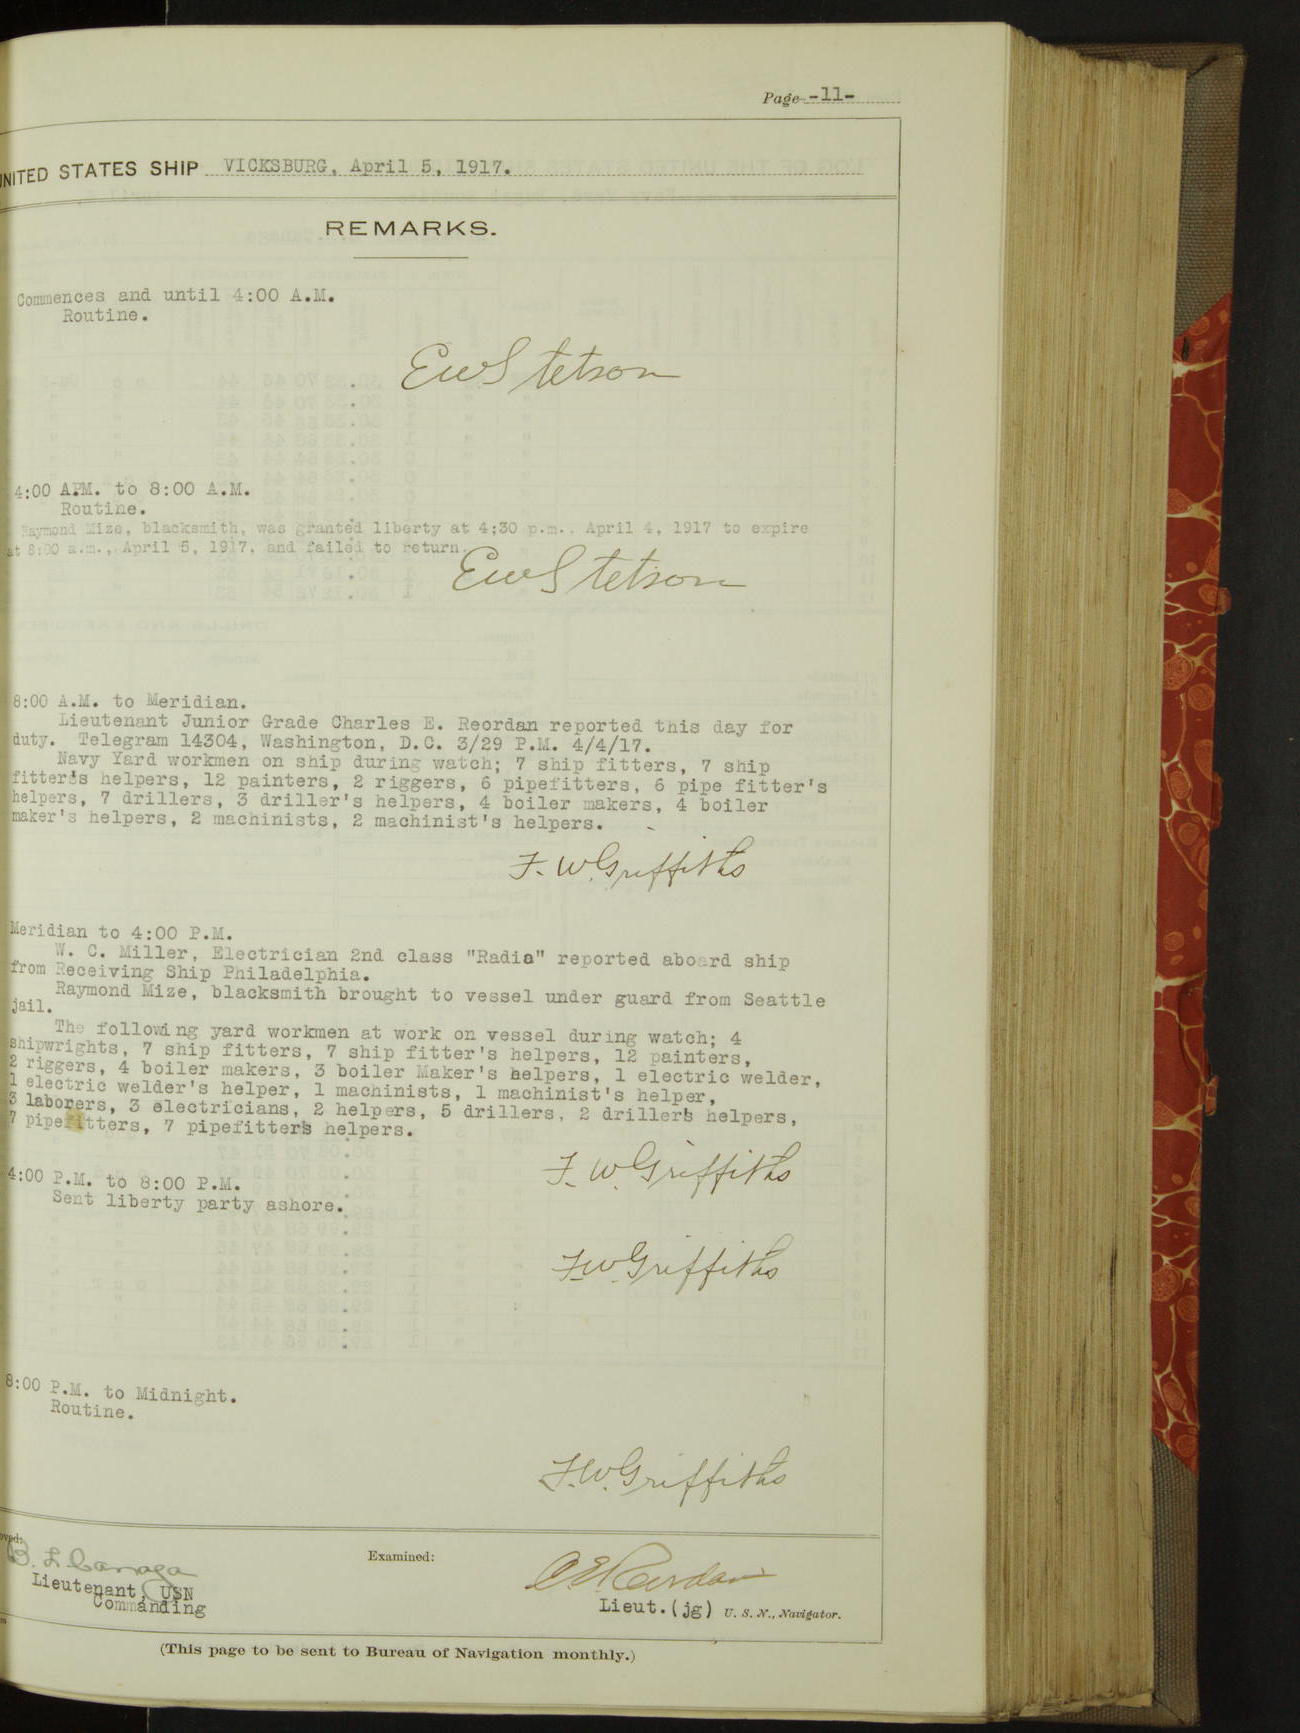 Page -11-
UNITED STATES SHIP VICKSBURG, April 5, 1917.
REMARKS.
Commences and until 4:00 A.M.
Routine.
EWStetson
4:00 A.M. to 8:00 A.M.
Routine.
Raymond Mize, blacksmith, was granted liberty at 4;30 p.m., April 4, 1917 to expire
at 8:00 a.m., April 5, 1917, and failed to return.
EWStetson
8:00 A.M. to Meridian.
Lieutenant Junior Grade Charles E. Reordan reported this day for
duty. Telegram 14304, Washington, D.C. 3/29 P.M. 4/4/17.
Navy Yard workmen on ship during watch; 7 ship fitters, 7 ship
fitter's helpers, 12 painters, 2 riggers, 6 pipefitters, 6 pipe fitter's
helpers, 7 drillers, 3 driller's helpers, 4 boiler makers, 4 boiler
maker's helpers, 2 machinists, 2 machinist's helpers.
F. W. Griffiths
Meridian to 4:00 P.M.
W. C. Miller, Electrician 2nd class "Radio" reported aboard ship
from Receiving Ship Philadelphia.
Raymond Mize, blacksmith brought to vessel under guard from Seattle
jail.
The following yard workmen at work on vessel during watch; 4
shipwrights, 7 ship fitters, 7 ship fitter's helpers, 12 painters,
2 riggers, 4 boiler makers, 3 boiler Maker's helpers, 1 electric welder,
1 electric welder's helper, 1 machinists, 1 machinist's helper,
3 laborers, 3 electricians, 2 helpers, 5 drillers, 2 drillers helpers,
7 pipefitters, 7 pipefitters helpers.
F. W. Griffiths
4:00 P.M. to 8:00 P.M.
Sent liberty party ashore.
F. W. Griffiths
8:00 P.M. to Midnight.
Routine.
F. W. Griffiths
Examined:
B. L. Canaga
C E Reordan
Lieutenant, USN
Commanding
Lieut.(jg) U. S. N., Navigator.
(This page to be sent to Bureau of Navigation monthly.)